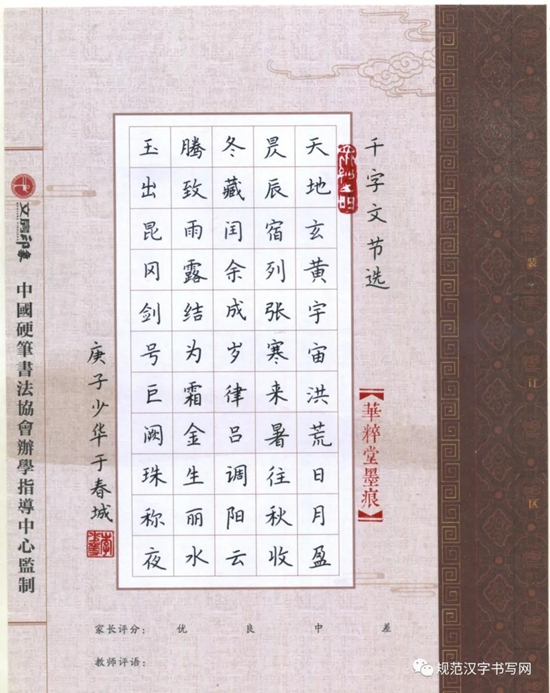 装订区
千字文节选
華粹堂墨痕
天地玄黄宇宙洪荒日月盈
昃辰宿列张寒来暑往秋收
冬藏闰余成岁律吕调阳云
腾致雨露结为霜金生丽水
玉出昆冈剑号巨阙珠称夜
庚子少华于春城
中國硬筆書法協會辦學指導中心監制
家长评分： 优 良 中 差
教师评语：
规范汉字书写网